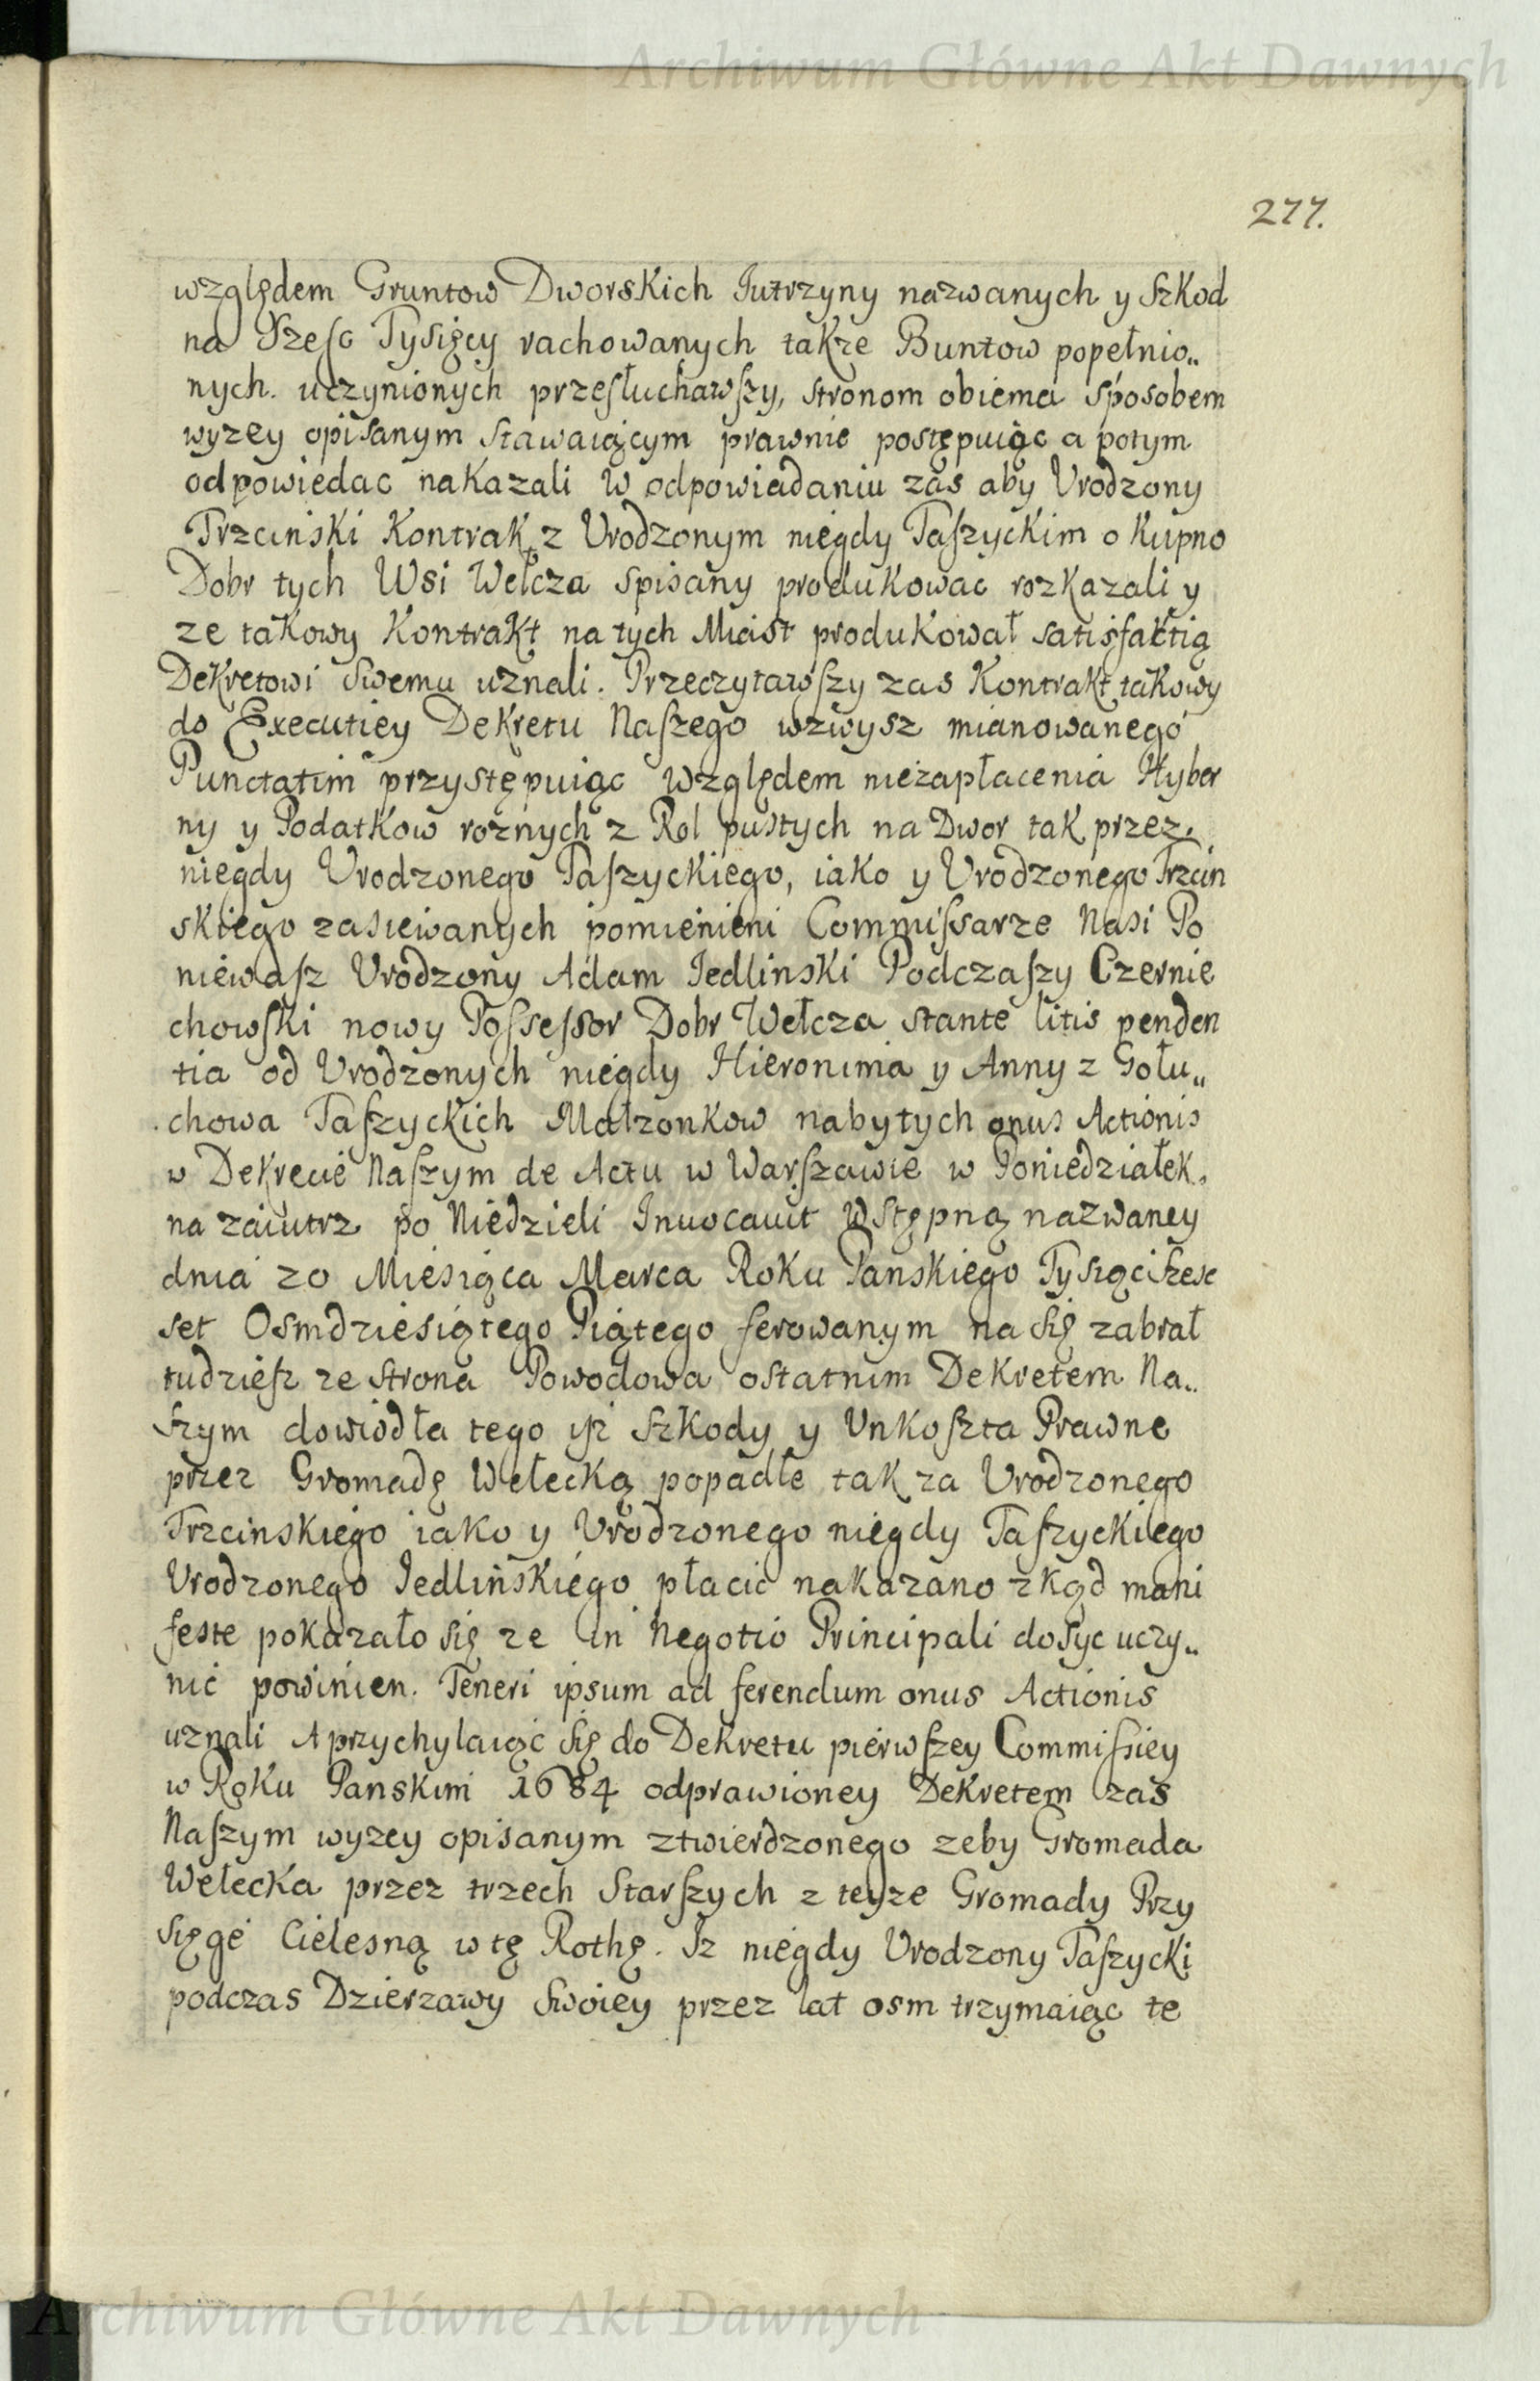 Archiwum Główne Akt Dawnych
277.
względem Gruntow Dworskich Jutrzyny nazwanych y Szkod
na Szesc Tysięcy rachowanych takze Buntow popełnio„
nych. uczynionych przesłuchawszy, stronom obiema sposobem
wyzey opisanym stawaiącym prawnie postępuiąc a potym
odpowiedac nakazali w odpowiadaniu zas aby Vrodzony
Trzcinski Kontrakt z Vrodzonym niegdy Taszyckim o Kupno
Dobr tych Wsi Wełcza spisany produkowac rozkazali y
ze takowy Kontrakt na tych Miast produkował satisfaktią
Dekretowi swemu uznali. Przeczytawszy zas Kontrakt takowy
do Executiey Dekretu Naszego wzwysz mianowanego
Punctatim przystępuiąc względem niezapłacenia Hyber
ny y Podatkow roznych z Rol pustych na Dwor tak przez
niegdy Vrodzonego Taszyckiego, iako y Vrodzonego Trzcin
skiego zasiewanych pomienieni Commissarze Nasi Po
niewasz Vrodzony Adam Jedlinski Podczaszy Czernie
chowski nowy Possessor Dobr Wełcza stante litis penden
tia od Vrodzonych niegdy Hieronima y Anny z Gołu„
chowa Taszyckich Małzonkow nabytych onus Actionis
w Dekrecie Naszym de Actu w Warszawie w Poniedziałek
na zaiutrz po Niedzieli Inuocauit Wstępną nazwaney
dnia 20 Miesiąca Marca Roku Panskiego Tysiąc Szesc
set Osmdziesiątego Piątego ferowanym na się zabrał
tudziesz ze strona Powodowa ostatnim Dekretem Na„
szym dowiodła tego isz szkody y Vnkoszta Prawne
przez Gromadę Wełecką popadłe tak za Vrodzonego
Trzcinskiego iako y Vrodzonego niegdy Taszyckiego
Vrodzonego Jedlinskiego płacic nakazano zkąd mani
feste pokazało się ze in Negotio Principali dosyc uczy„
nic powinien. Teneri ipsum ad ferendum onus Actionis
uznali A przychylaiąc się do Dekretu pierwszey Commissiey
w Roku Panskim 1684 odprawioney Dekretem zas
Naszym wyzey opisanym ztwierdzonego zeby Gromada
Wełecka przez trzech Starszych z teyze Gromady Przy
sięgę Cielesną w tę Rothę. Iz niegdy Vrodzony Taszycki
podczas Dzierzawy swoiey przez lat osm trzymaiąc te
Archiwum Główne Akt Dawnych